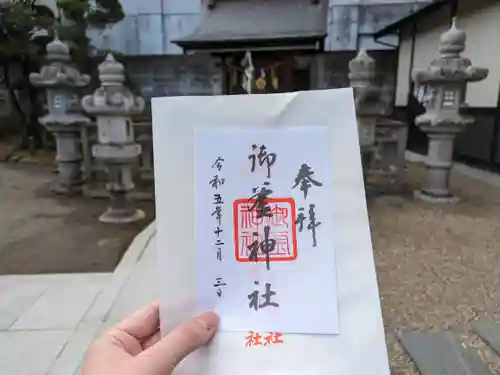 奉拝
御釜神社
令和五年十二月三日
社社